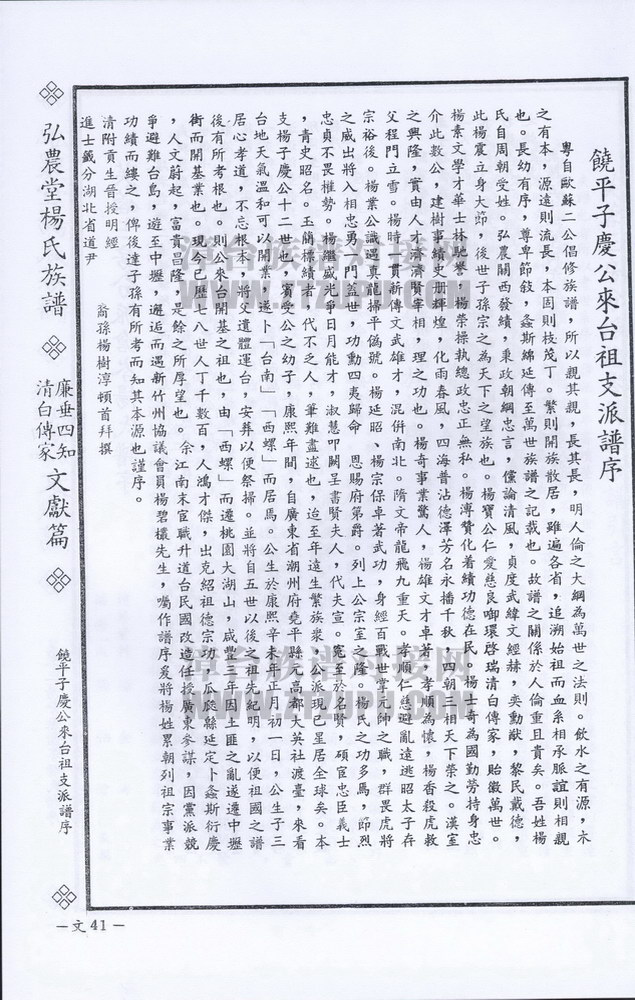 饒平子慶公來台祖支派譜序
粵自歐蘇二公倡修族譜，所以親其親，長其長，明人倫之大綱為萬世之法則。飲水之有源，木
之有本，源遠則流長，本固則枝茂丁。繁則開族散居，雖遍各省，追溯始祖而血系相承脈誼則相親
也。長幼有序，尊卑節敍，螽斯綿延傳至萬世族譜之記載也。故譜之關係於人倫重且貴矣。吾姓楊
氏自周朝受姓。弘農關西發績，秉政朝綱忠言，儻論清風，貞度武緯文經赫，奕勳猷，黎民戴德，
此楊震立身大節，後世子孫宗之為天下之望族也。楊寶公仁愛慈良啣環啓瑞清白傳家，貽徽萬世。
楊素文學才華士林馳譽。楊榮操執總政忠正無私。楊溥贊化着績功德在民。楊奇為國勤勞持身忠
介此數公，建樹事績史册輝煌，化雨春風，四海普沾德澤芳名永播千秋。四朝三相天下榮之。漢室
之興隆，實由人才濟濟賢宰相，理之功也。楊奇事業驚人，楊雄文才卓著。孝順為懷，楊香殺虎救
父程門立雪。楊時一貫薪傳文武雄才，混倂南北。隋文帝龍飛九重天。孝順仁慈避亂遠逃昭太子存
宗裕後。楊業公識遇真龍掃平僞號。楊延昭、楊宗保卓著武功，身經百戰世掌元帥之職，群畏虎將
之威出將入相忠勇一門蓋世，功勳四夷歸命　恩賜府第爵。列上公宗室之隆。楊氏之功多馬，節烈
忠貞不畏權勢。楊繼盛光爭日月能才，淑慧叩闕呈書賢夫人，代夫宣。寃至於名賢，碩宦忠臣義士
，青史昭名。玉簡標績者，代不乏人，筆難盡述也，迨至年遠生繁族衆，公派現已星居全球矣。本
支楊子慶公十二世也，賓受公之幼子，康熙年間，自廣東省潮州府堯平縣元高都大英社渡臺，來看
台地天氣溫和可以開業，遂卜「台南」「西螺」而居馬。公生於康熙辛未年正月初一日，公生子三
居心孝道，不忘根本，將父遺體運台，安葬以便祭掃。並將自五世以後之祖先紀明，以便祖國之譜
後有所考根也。則公來台開基之祖也，由「西螺」而遷桃園大湖山，咸豐三年因土匪之亂遂遷中壢
街而開基業也。現今已歷七八世人丁千數百，人鴻才傑，出克紹祖德宗功，瓜瓞縣延定卜螽斯衍慶
，人文蔚起，富貴昌隆，是餘之所厚望也。余江南末宦職升道台民國改造任授廣東參謀，因黨派競
爭避難台島，遊至中壢，邂逅而遇新竹州協議會員楊碧欉先生，囑作譜序爰將楊姓累朝列祖宗事業
功績而縷之，俾後達子孫有所考而知其本源也謹序。
裔孫楊樹淳頓首拜撰
清附貢生晉授明經
進士籤分湖北省道尹
弘農堂楊氏族譜
廉垂四知
清白傳家
文獻篇
饒平子慶公來台祖支派譜序
－文41－